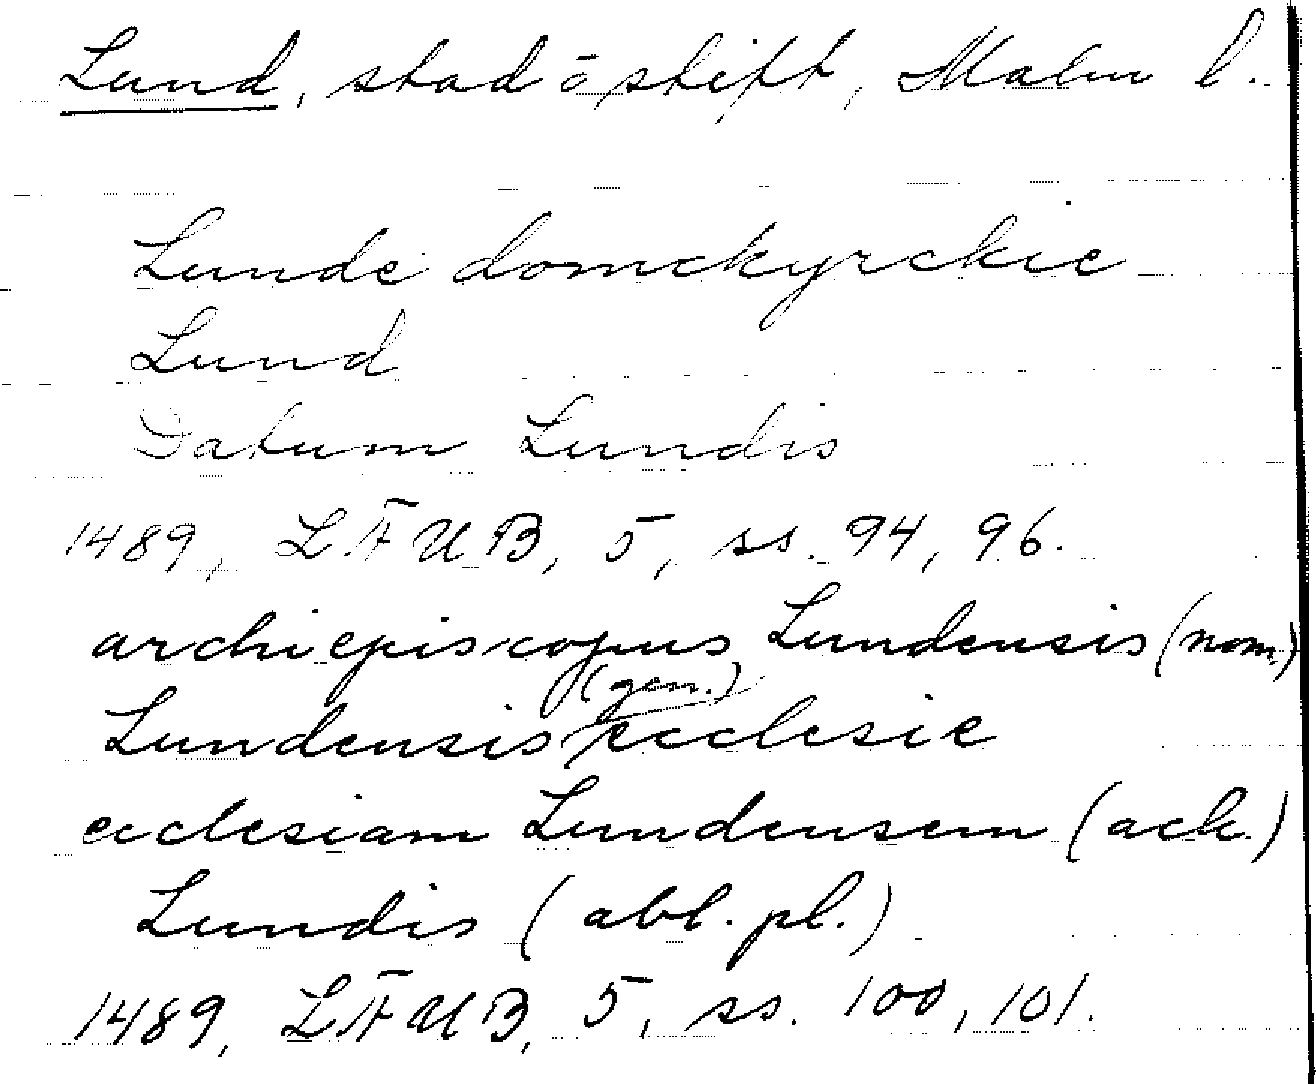 Lund, stad o stift, Malm l.
Lunde domckyrckie
Lund
Datum Lundis
1489, LÄUB, 5, ss. 94, 96.
archiepiscopus Lundensis (nom.)
Lundensis (gen.) ecclesie
ecclesiam Lundensem (ack.)
Lundis (abl. pl.)
1489, LÄUB, 5, ss. 100, 101.